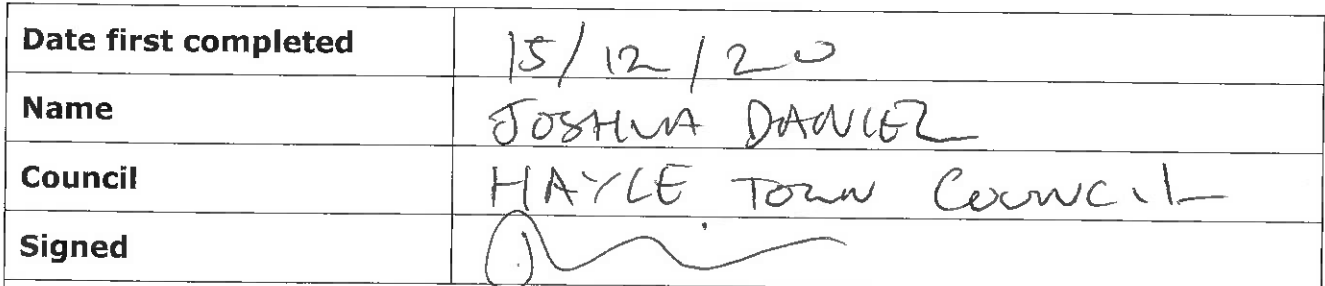 Date first completed 15/12/20
Name JOSHUA DANIEL
Council HAYLE TOWN COUNCIL
Signed